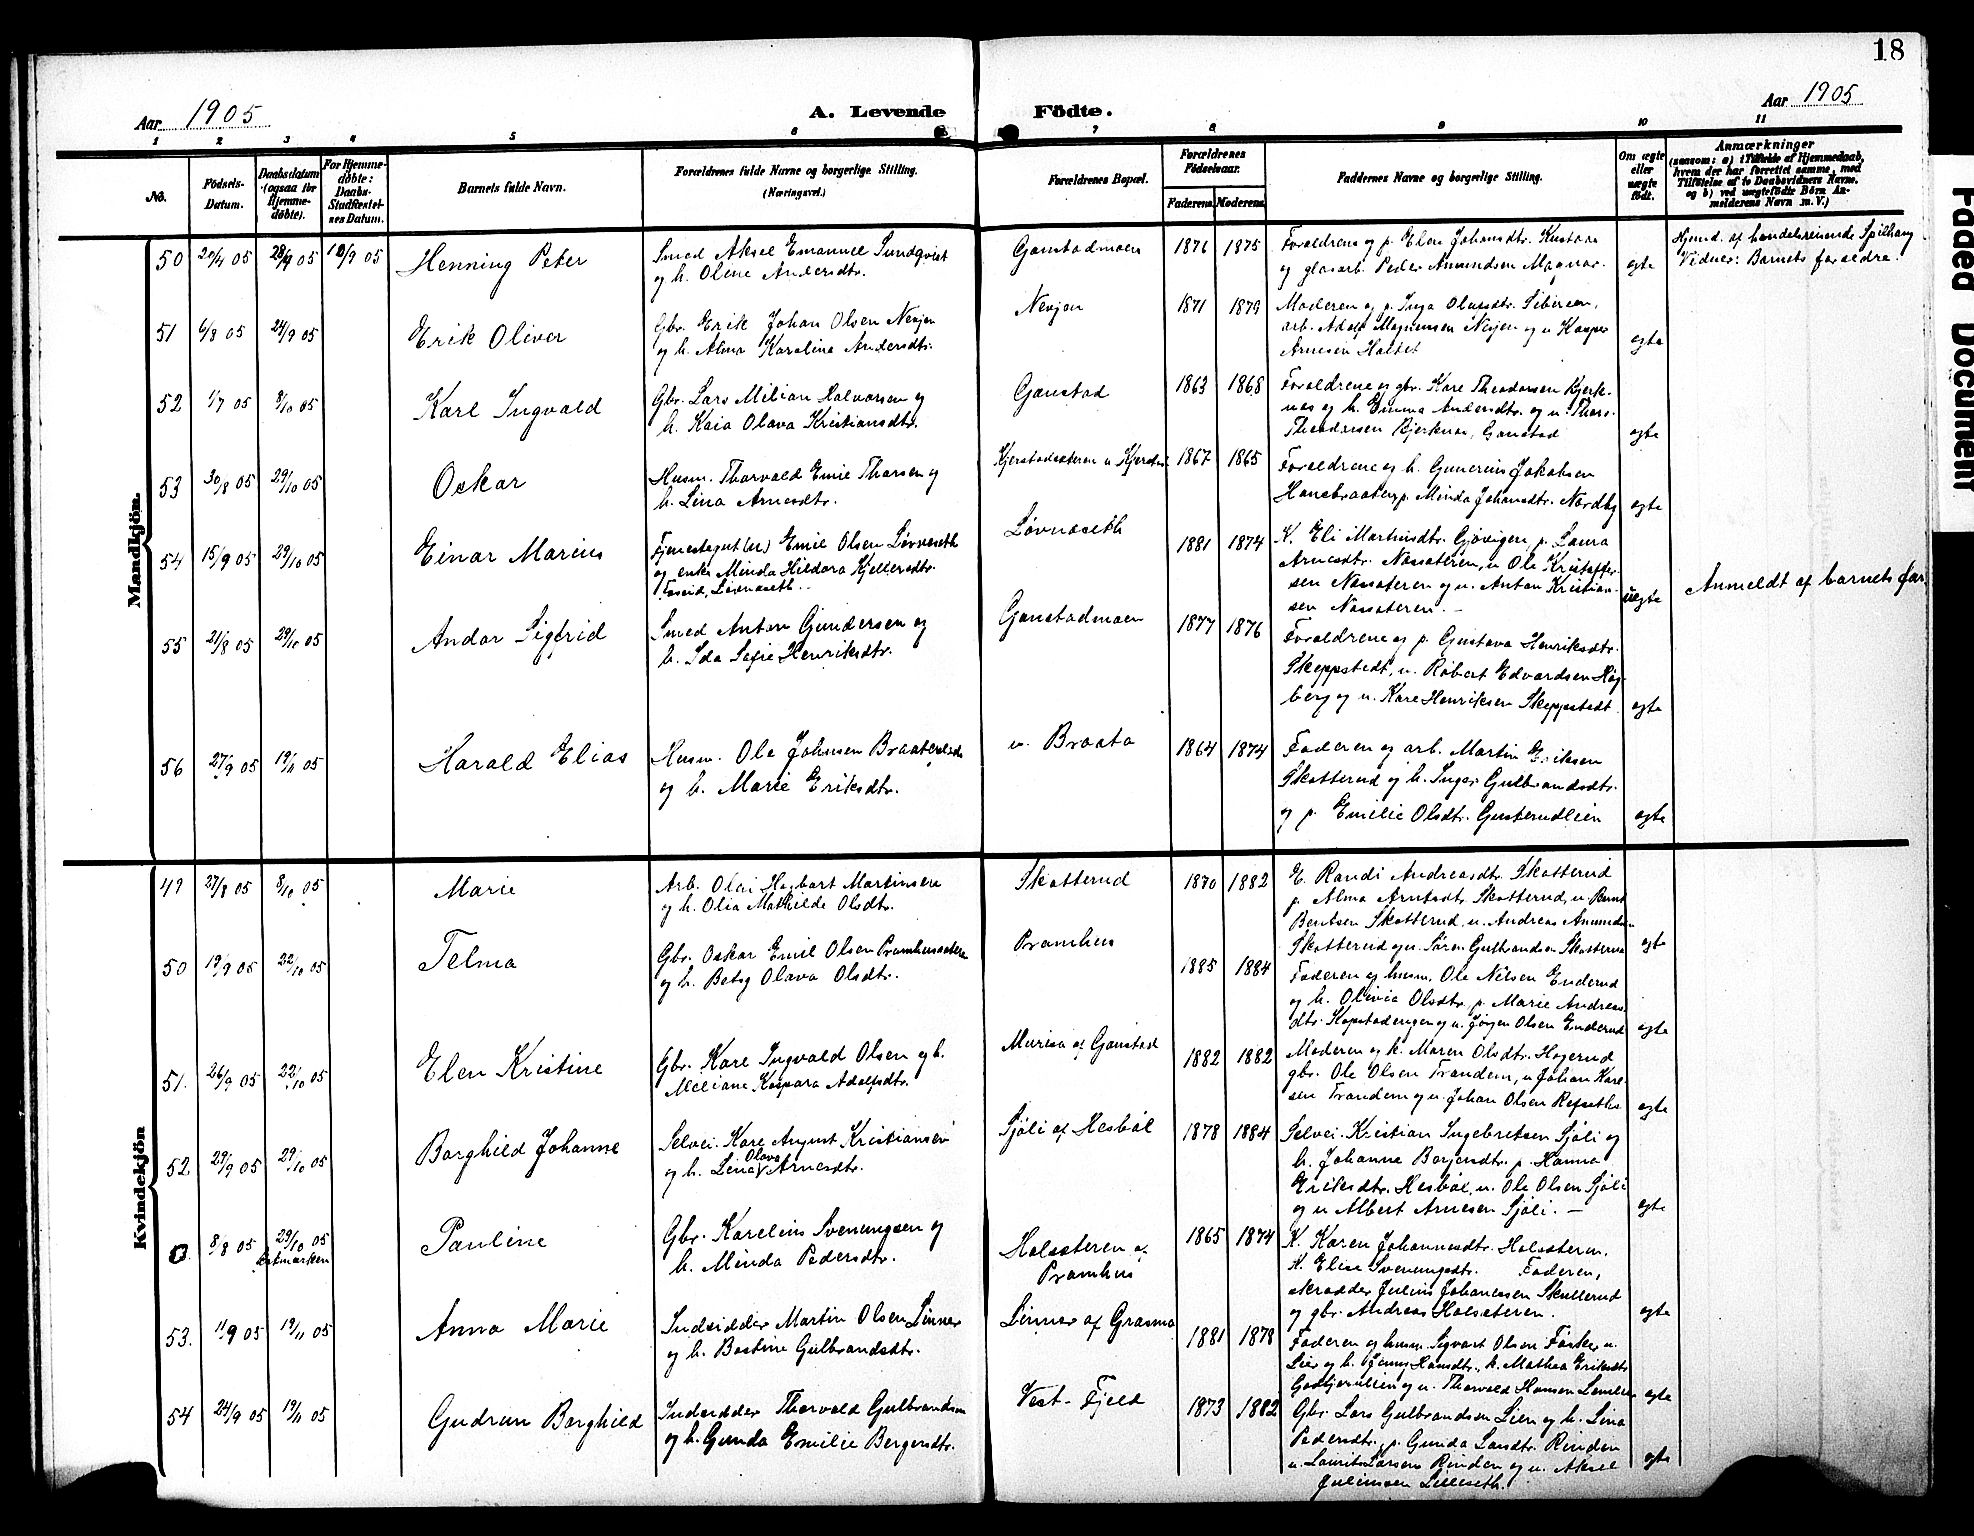 18
Aar 1905
A. Levende Födte.
Aar 1905
1 2 3 4 5 6 7 8 9 10 11
No.
Födsels-Datum.
Daabsdatum (ogsaa for Hjemmedöbte).
For Hjemmedöbte: Daabs-Stadfæstelsens Datum.
Barnets fulde Navn.
Forældrenes fulde Navne og borgerlige Stilling.
(Næringsvei.)
Forældrenes Bopæl.
Forældrenes Födselsaar.
Faderens. Moderens.
Faddernes Navne og borgerlige Stilling.
Om ægte eller uægte födt.
Anmærkninger
(saasom: a) i Tilfælde af Hjemmedaab, hvem der har forrettet samme, med Tilföielse af to Daabsvidners Navne, og b) ved uægtefödte Börn Anmelderens Navn m. V.)
Mandkjön.
50 20/4 05 28/9 05 10/9 05 Henning Peter
Smed Aksel Emanuel Sundqvist
og h. Oline Andersdtr.
Gaustadmoen 1876 1875
Forældrene og p. Elen Johansdtr.
og glasarb. Peder Amundsen Magnor.
ægte
Hjemd. af handelsreisende Spilhaug
Vidner: Barnets forældre.
51 6/8 05 24/9 05 Erik Oliver
Gbr. Erik Johan Olsen Nevjen
og h. Alma Karoline Andersdtr.
Nevjen 1871 1879
Moderen og p. Inga Olausdtr. Siberien,
arb. Adolf Magnussen Nevjen og u. Kasper
Arnesen Holtet
ægte
52 1/7 05 8/10 05 Karl Ingvald
Gbr. Lars Milian Halvorsen og
h. Kaia Olava Kristiansdtr.
Gaustad 1863 1868
Forældrene og gbr. Karl Theodorsen Bjerk-
nes og h. Emma Andersdtr. og u. Thor
Theodorsen Bjerknes, Gaustad
ægte
53 30/8 05 29/10 05 Oskar
Husm. Thorvald Emil Thorsen og
h. Lina Arnesdtr.
Kjerstadsæteren u. Kjerstad 1867 1865
Forældrene og h. Gunerius Jakobsen
Hansbraaten p. Minda Johansdtr. Nordby
ægte
54 15/9 05 29/10 05 Einar Marius
Tjenestegut (u) Emil Olsen Løvnæseth
og enke Minda Hildora Kjellersdtr.
Løvnæseth.
Løvnæseth 1881 1874
K. Eli Martinsdtr. Gjøvigen p. Laura
Arnesdtr. Næssæteren, u. Ole Kristoffer-
sen Næssæteren og u. Anton Kristian-
sen Næssæteren. —
uægte
Anmeldt af barnets far
55 21/8 05 29/10 05 Andor Sigfrid
Smed Anton Gundersen og
h. Ida Sofie Henriksdtr.
Gaustadmoen 1877 1876
Forældrene og p. Gustava Henriksdtr.
Skeppstedt, u. Robert Edvardsen Høg-
berg og u. Karl Henriksen Skeppstedt
ægte
56 27/9 05 19/11 05 Harald Elias
Husm. Ole Johnsen
og h. Marie Eriksdtr.
u. Braata 1864 1874
Faderen og arb. Martin Eriksen
Skotterud og h. Inger Gulbrandsdtr.
og p. Emilie Olsdtr. Gusterudlien
ægte
Kvindekjön
49 27/8 05 8/10 05 Marie
Arb. Olai Hagbart Martinsen
og h. Olia Mathilde Olsdtr.
Skotterud 1870 1882
E. Randi Andreasdtr. Skotterud
p. Alma Arntsdtr. Skotterud, u. Bernt
Berntsen Skotterud u. Andreas Amundsen
Skotterud og u. Søren Gulbrandsen Skotterud
ægte
50 19/9 05 22/10 05 Telma
Gbr. Oskar Emil Olsen Pramhussæteren
og h. Betsy Olava Olsdtr.
Pramhus 1885 1884
Faderen og husm. Ole Nilsen Enderud
og h. Olivia Olsdtr. p. Marie Andreas
dtr. Kopstadengen og u. Jørgen Olsen Enderud
ægte
51. 26/9 05 22/10 05 Elen Kristine
Gbr. Karl Ingvald Olsen og h.
Miliane Kaspara Adolfsdtr.
Murisa af Gaustad 1882 1882
Moderen og k. Maren Olsdtr. Hagerud
gbr. Ole Olsen Trandem, u. Johan Karl-
sen Trandem og u. Johan Olsen Refseth
ægte
52. 29/9 05 29/10 05 Borghild Johanne
Selvei. Karl August Kristiansen
og h. Lina Olava Arnesdtr.
Sjöli af Hesböl 1878 1884
Selvei. Kristian Ingebretsen Sjöli og
h. Johanne Borjersdtr. p. Hanna
Eriksdtr. Hesböl, u. Ole Olsen Sjöli
og u. Albert Arnesen Sjöli. —
ægte
0 8/8 05 29/10 05 Pauline
Gbr. Karelius Svenungsen og
h. Minda Pedersdtr.
Holsæteren af
Pramhus 1865 1874
K. Karen Johannesdtr. Holsæteren.
K. Elise Svenungsdtr. Faderen,
skrædder Julius Johannesen Skullerud
og gbr. Andreas Holsæteren.
ægte
53. 11/9 05 19/11 05 Anna Marie
Inderst Martin Olsen Linner
og h. Bastine Gulbrandsdtr.
Linner af Grasmo 1881 1878
Faderen og husm. Sigvart Olsen u.
Lier og h. Jenny Hansdtr., k. Mathea Eriksdtr.
og u. Thorvald Hansen
ægte
54 24/9 05 19/11 05 Gudrun Borghild
Thorvald Gulbrandsen
og h. Gunda Emilie Bergersdtr.
Vest-Fjeld 1873 1882
Gbr. Lars Gulbrandsen Lien og h. Lina
Pedersdtr., p. Gunda Larsdtr. Rinden
u. Laurits Larsen Rinden og u. Aksel
Julinsen Lilleseth.
ægte
Faded Document